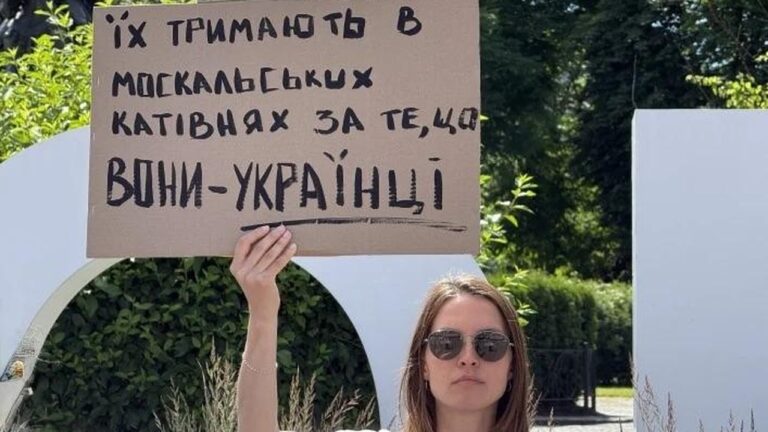 ЇХ ТРИМАЮТЬ В
МОСКАЛЬСЬКИХ
КАТІВНЯХ ЗА ТЕ, ЩО
ВОНИ - УКРАЇНЦІ